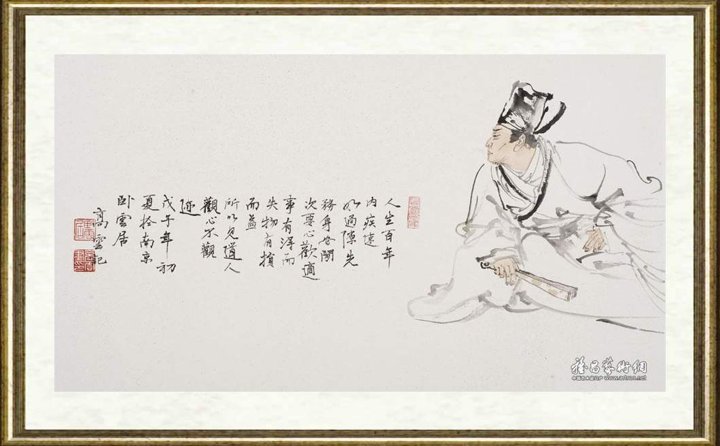 人生百年
内疾速
如過隙先
務身安閒
次要心歡適
事有得而
失物有損
而益
所以見道人
觀心不觀
迹
戊午年初
夏於南京
卧雲居
高雲記
雅昌藝術網
www.artron.net